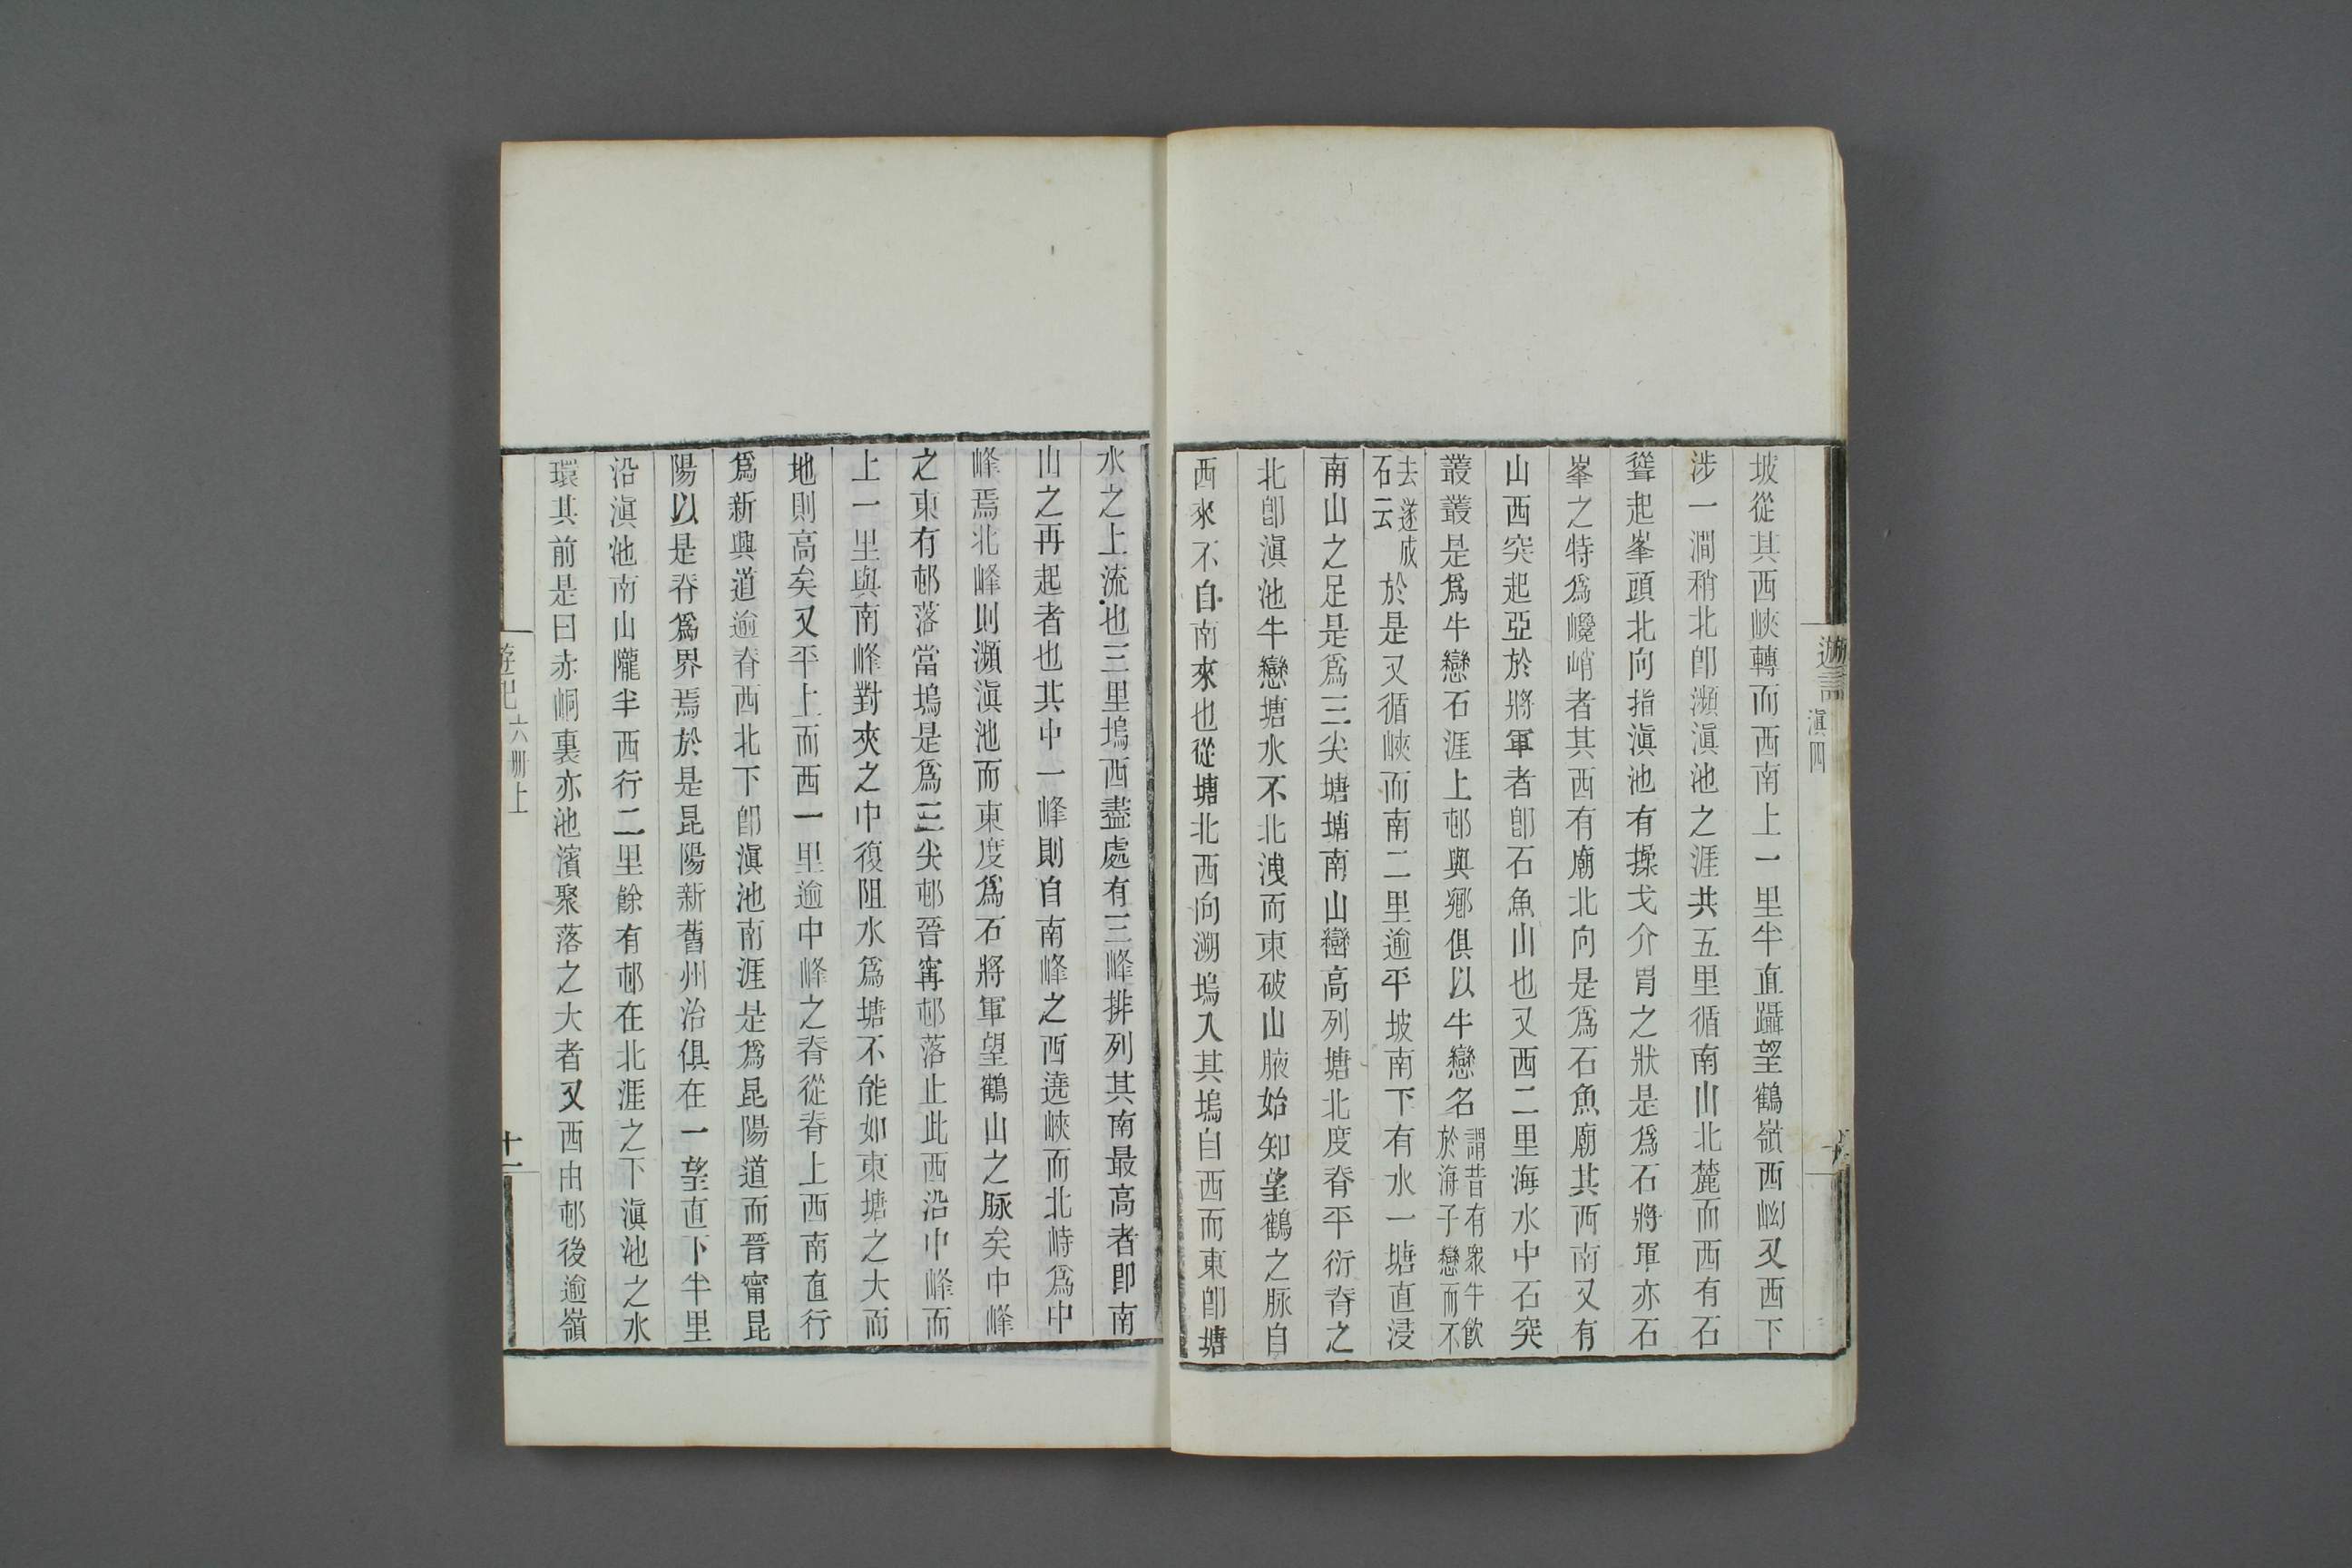 坡從其西峽轉而西南上一里半直躡望鶴嶺西坳又西下
涉一澗稍北卽瀕滇池之涯共五里循南山北麓而西有石
聳起峯頭北向指滇池有操戈介胄之狀是爲石將軍亦石
峯之特爲巉峭者其西有廟北向是爲石魚廟其西南又有
山西突起亞於將軍者卽石魚山也又西二里海水中石突
叢叢是爲牛戀石涯上邨與鄉俱以牛戀名謂昔有衆牛飲於海子戀而不
去遂成石云於是又循峽而南二里逾平坡南下有水一塘直浸
南山之足是爲三尖塘塘南山巒高列塘北度脊平衍脊之
北卽滇池牛戀塘水不北洩而東破山腋始知望鶴之脈自
西來不自南來也從塘北西向溯塢入其塢自西而東卽塘
水之上流也三里塢西盡處有三峰排列其南最高者卽南
山之再起者也其中一峰則自南峰之西遶峽而北峙爲中
峰焉北峰則瀕滇池而東度爲石將軍望鶴山之脉矣中峰
之東有邨落當塢是爲三尖邨晉寗邨落止此西沿中峰而
上一里與南峰對夾之中復阻水爲塘不能如東塘之大而
地則高矣又平上而西一里逾中峰之脊從脊上西南直行
爲新興道逾脊西北下卽滇池南涯是爲昆陽道而晉甯昆
陽以是脊爲界焉於是昆陽新舊州治俱在一望直下半里
沿滇池南山隴半西行二里餘有邨在北涯之下滇池之水
環其前是曰赤峒裏亦池濱聚落之大者又西由邨後逾嶺
遊記
滇四
遊記
六册上
十一